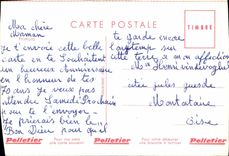 CARTE POSTALE
TIMBRE
Ma chère
Maman
Je t'envoie cette belle
carte en te souhaitant
un heureux Anniversaire
en l'honneur de tes
70 ans Je vous pense
attendre Samedi Prochain
pour te l'envoyer
Je prierais bien le
Bon Dieu pour qu'il
te garde encore
longtemps sur
cette terre à mon affection
Mme Henri
cité jules guesde
Montataire
Oise
Pelletier Pelletier Pelletier Pelletier